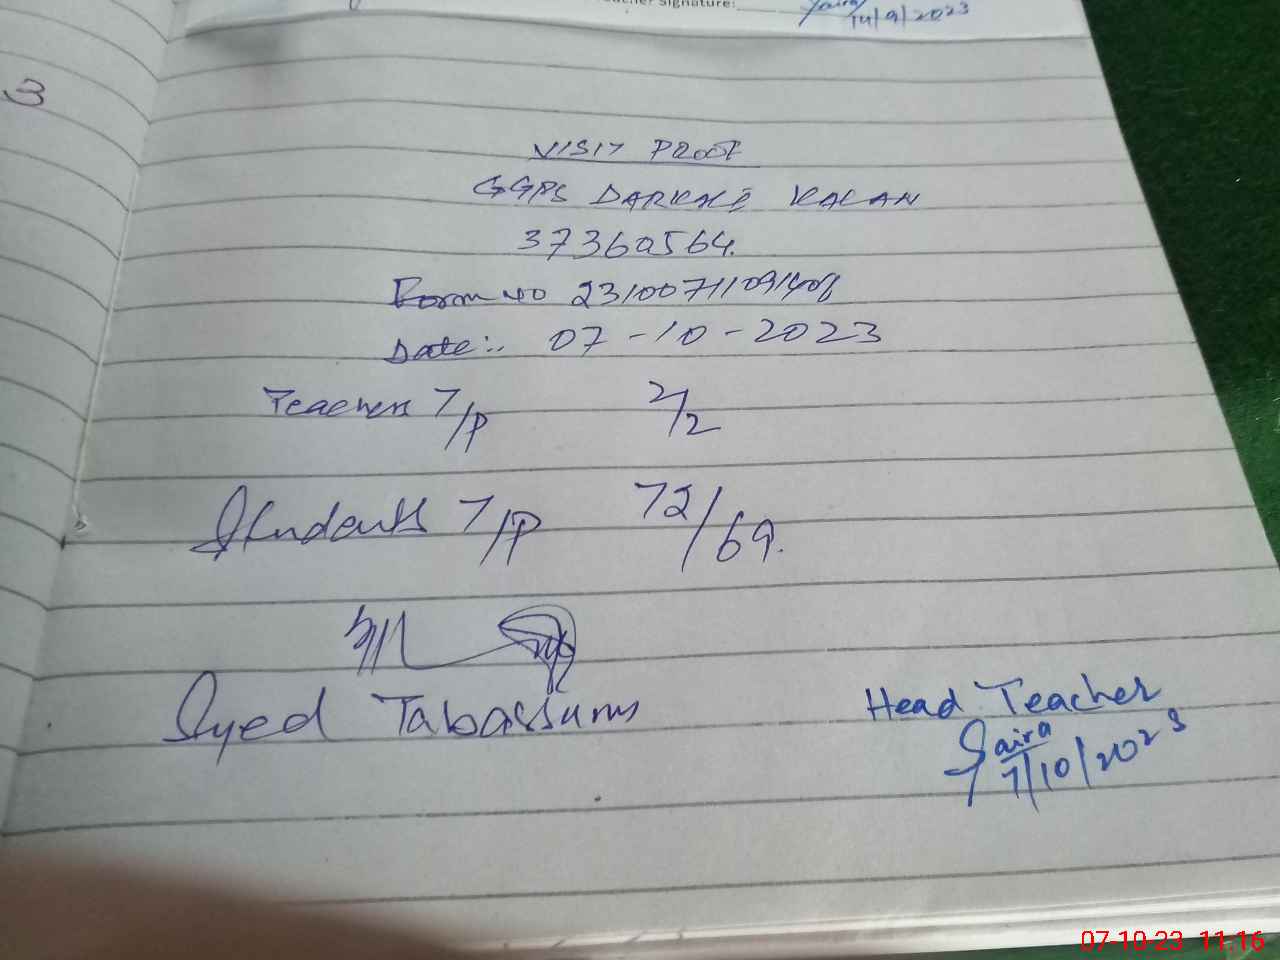 Teacher Signature:
Saira
14/9/2023
3
VISIT PROOF
GGPS DARKALI KALAN
37360564.
Form no 23100711091408
Date:. 07-10-2023
Teachers T/P 2/2
Students T/P 72/69.
Syed Tabassum
Head Teacher
Saira
7/10/2023
07-10-23 11:16